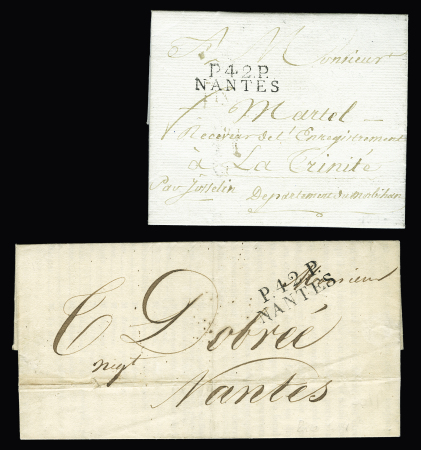 A Monsieur
P.42.P.
NANTES
Martel
Receveur de l'Enregistrement
à La Trinité
Par Josselin Departement du Morbihan
P.42.P.
NANTES
Monsieur
T Dobrée
negt
Nantes